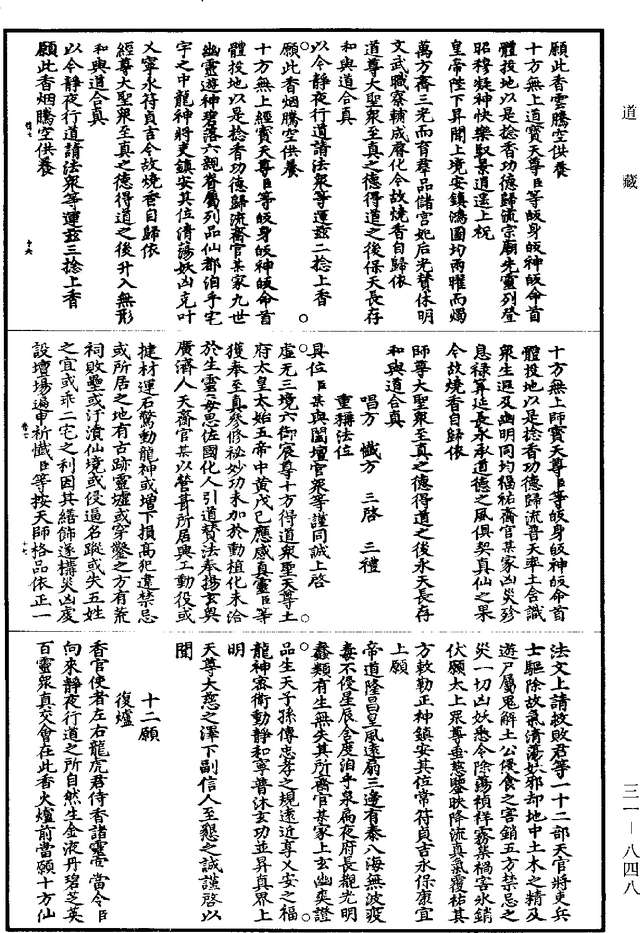 道藏
願此香雲騰空供養
十方無上道寶天尊臣等皈身皈神皈命首
體投地以是捻香功德歸流宗廟先靈列登
昭穆凝神快樂馭景逍遙上祝
皇帝陛下昇聞上境安鎮鴻圖均兩曜而燭
萬方齊三光而育群品儲宮妃后光贊休明
文武職寮輔成齊化今故燒香自歸依
道尊大聖眾至真之德得道之後保天長存
和與道合真
以今靜夜行道請法眾等運茲二捻上香
願此香烟騰空供養
十方無上經寶天尊臣等皈身皈神皈命首
體投地以是捻香功德歸流齋官某家九世
幽靈遊神碧落六親眷屬列品仙都洎乎宅
宇之中龍神將吏鎮安其位清蕩妖凶克叶
乂寧永符貞吉今故燒香自歸依
經尊大聖眾至真之德得道之後升入無形
和與道合真
以今靜夜行道請法眾等運茲三捻上香
願此香烟騰空供養
十方無上師寶天尊臣等皈身皈神皈命首
體投地以是捻香功德歸流普天率土含識
眾生遐及幽明同均福祐齋官某家凶災殄
息祿算延長永承道德之風俱契真仙之果
今故燒香自歸依
師尊大聖眾至真之德得道之後永天長存
和與道合真
唱方 懺方 三啓 三禮
重稱法位
具位臣某與闔壇官眾等謹同誠上啓
虛无三境六御宸尊十方得道眾聖天尊土
府太皇太始五帝中黃戊己應感真靈臣等
獲奉至真參修祕妙功未加於動植化未洽
於生靈每思佐國化人引道贊法奉揚玄奧
廣濟人天齋官某以營葺所居興工動役或
揵材運石驚動龍神或增下損高犯違禁忌
或所居之地有古跡靈壇或穿鑿之方有荒
祠敗壘或汙瀆仙境或侵逼名蹤或失五姓
之宜或乖二宅之利因其繕飾遂構災凶虔
設壇場遍申祈懺臣等按天師格品依正一
法文上請救敗君等一十二部天官將吏兵
士驅除故氣清蕩妖邪却地中土木之精及
遊尸屬鬼解土公侵食之害銷五方禁忌之
災一切凶妖悉令除蕩禎祥霧集禍害氷銷
伏願太上眾尊垂慈鑒映降流真氣覆祐其
方敕勒正神鎮安其位常符貞吉永保康宜
上願
帝道隆昌皇風遠扇三邊有泰八海無波疫
毒不侵星辰合度洎乎泉扃夜府長覩光明
蠢類有生無失其所齋官某家上玄幽奕證
品生天子孫傳忠孝之規遠近享乂安之福
龍神密衛動靜和寧普沐玄功並昇真界上
明
天尊大慈之澤下副信人至懇之誠謹啓以
聞
十二願
復爐
香官使者左右龍虎君侍香諸靈官當令臣
向來靜夜行道之所自然生金液丹碧芝英
百靈眾真交會在此香火爐前當願十方仙
三一—八四八